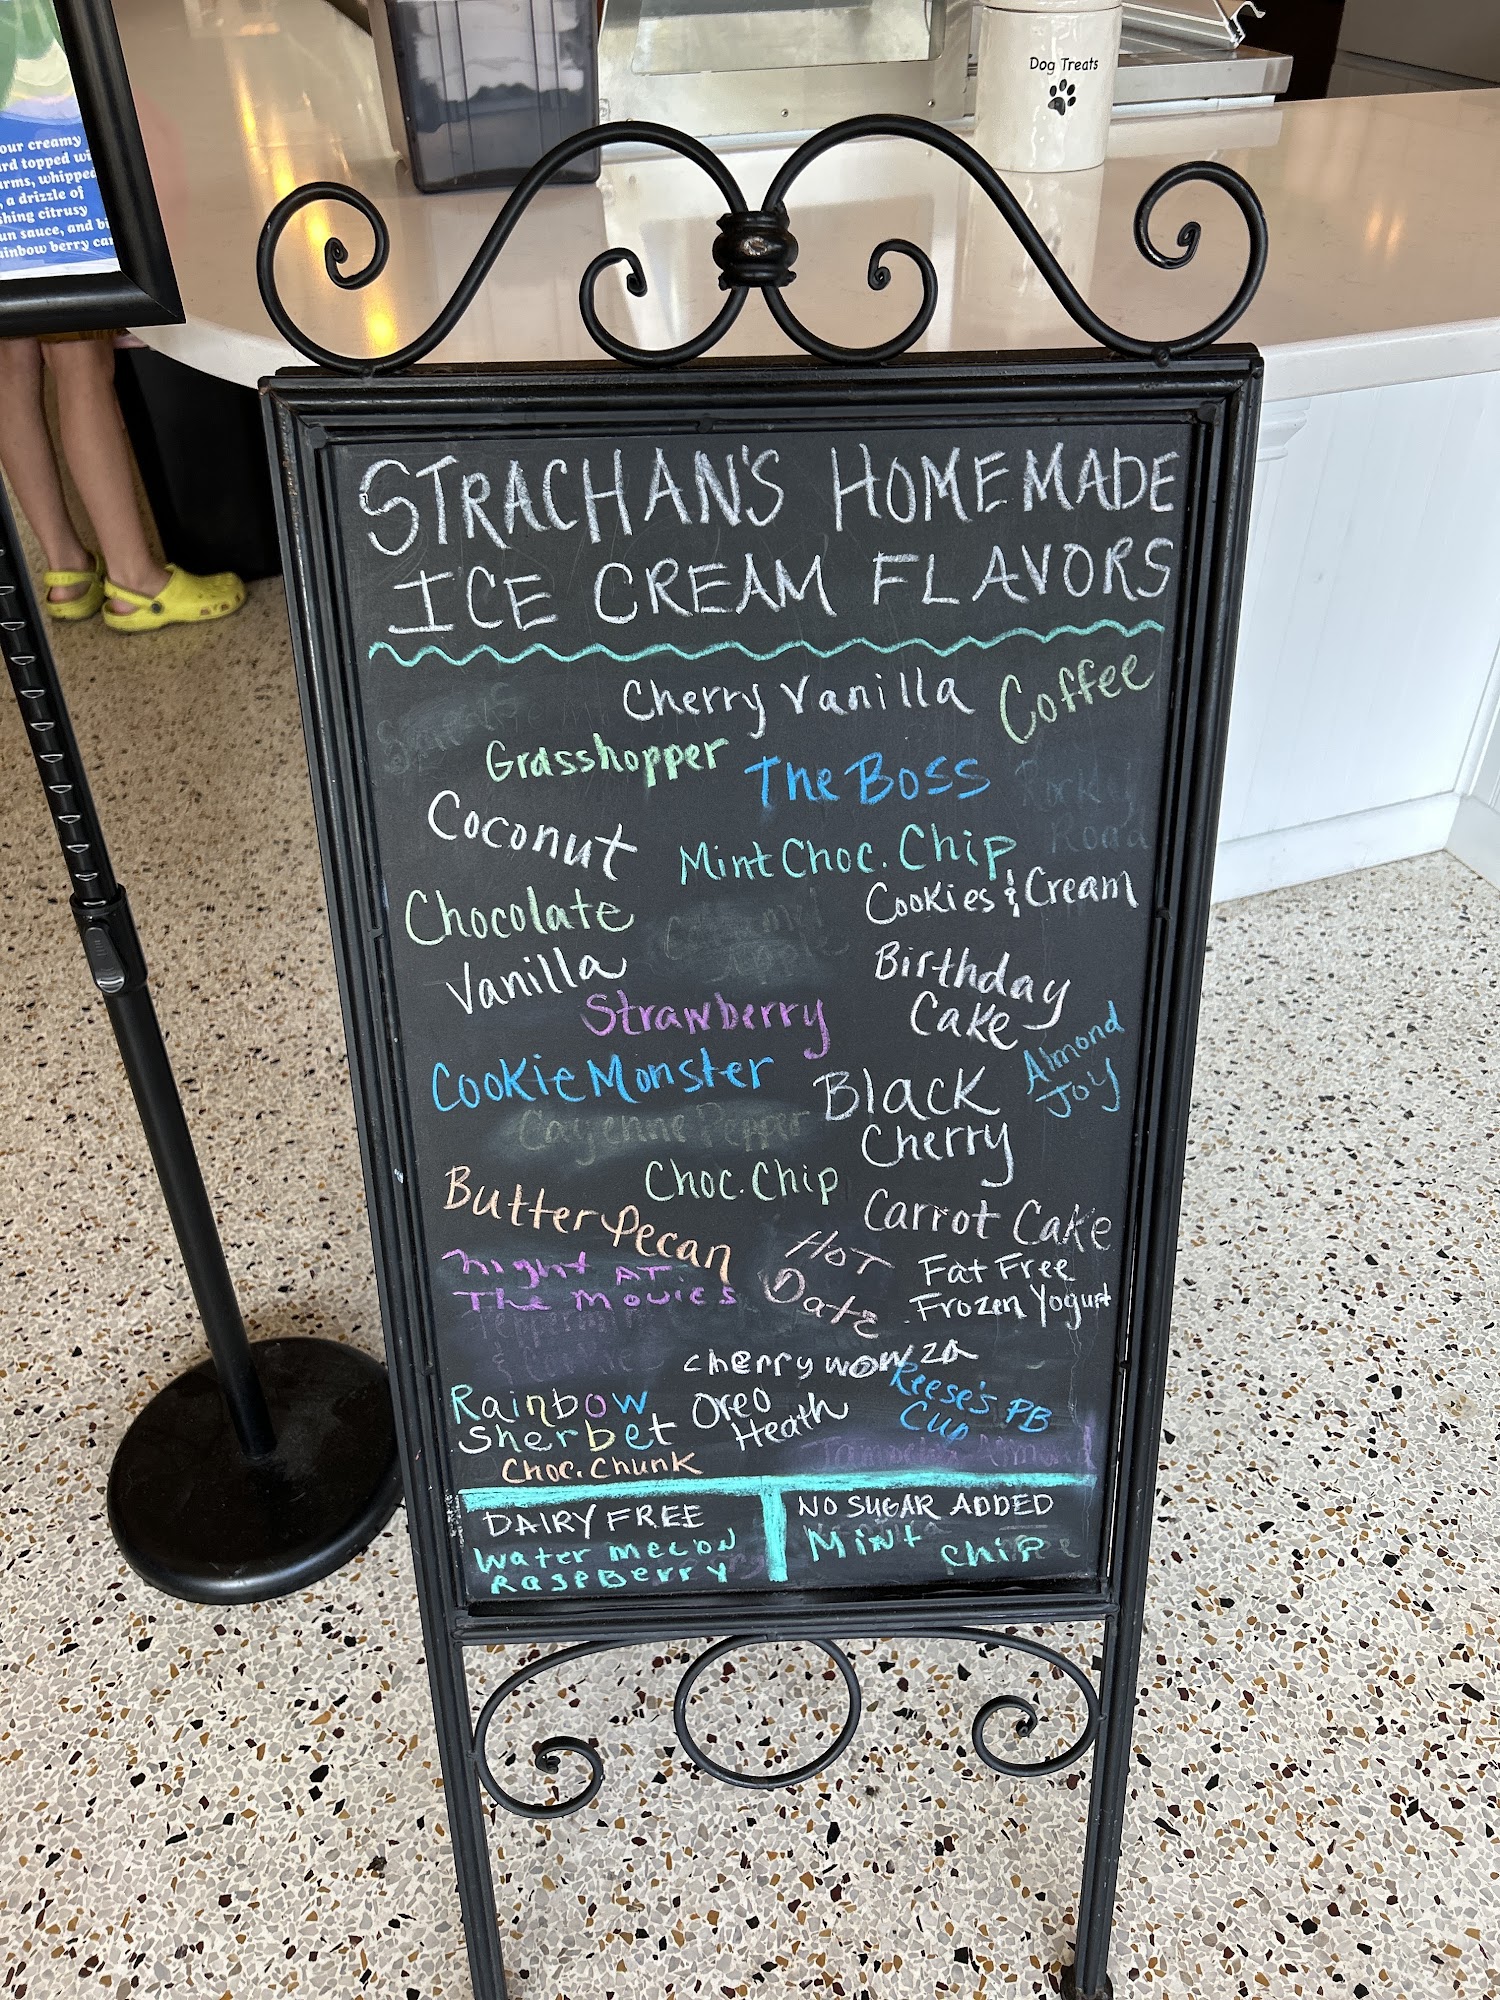 our creamy
topped wi
whipped
, a drizzle of
citrusy
sauce, and
berry
Dog Treats
STRACHAN'S HOMEMADE
ICE CREAM FLAVORS
Cherry Vanilla
Coffee
Grasshopper
The Boss
Rocky
Road
Coconut
Mint Choc. Chip
Cookies & Cream
Chocolate
Caramel
Vanilla
Birthday
Cake
Strawberry
Almond
Joy
Cookie Monster
Black
Cherry
Cayenne Pepper
Choc. Chip
Butter Pecan
Carrot Cake
Night AT
The Movies
HOT
Date
Fat Free
Frozen Yogurt
cherry wowza
Reese's PB
Cup
Rainbow
Sherbet
Oreo
Heath
Choc. Chunk
Almond
DAIRY FREE
Water melon
RaspBerry
NO SUGAR ADDED
Mint chip